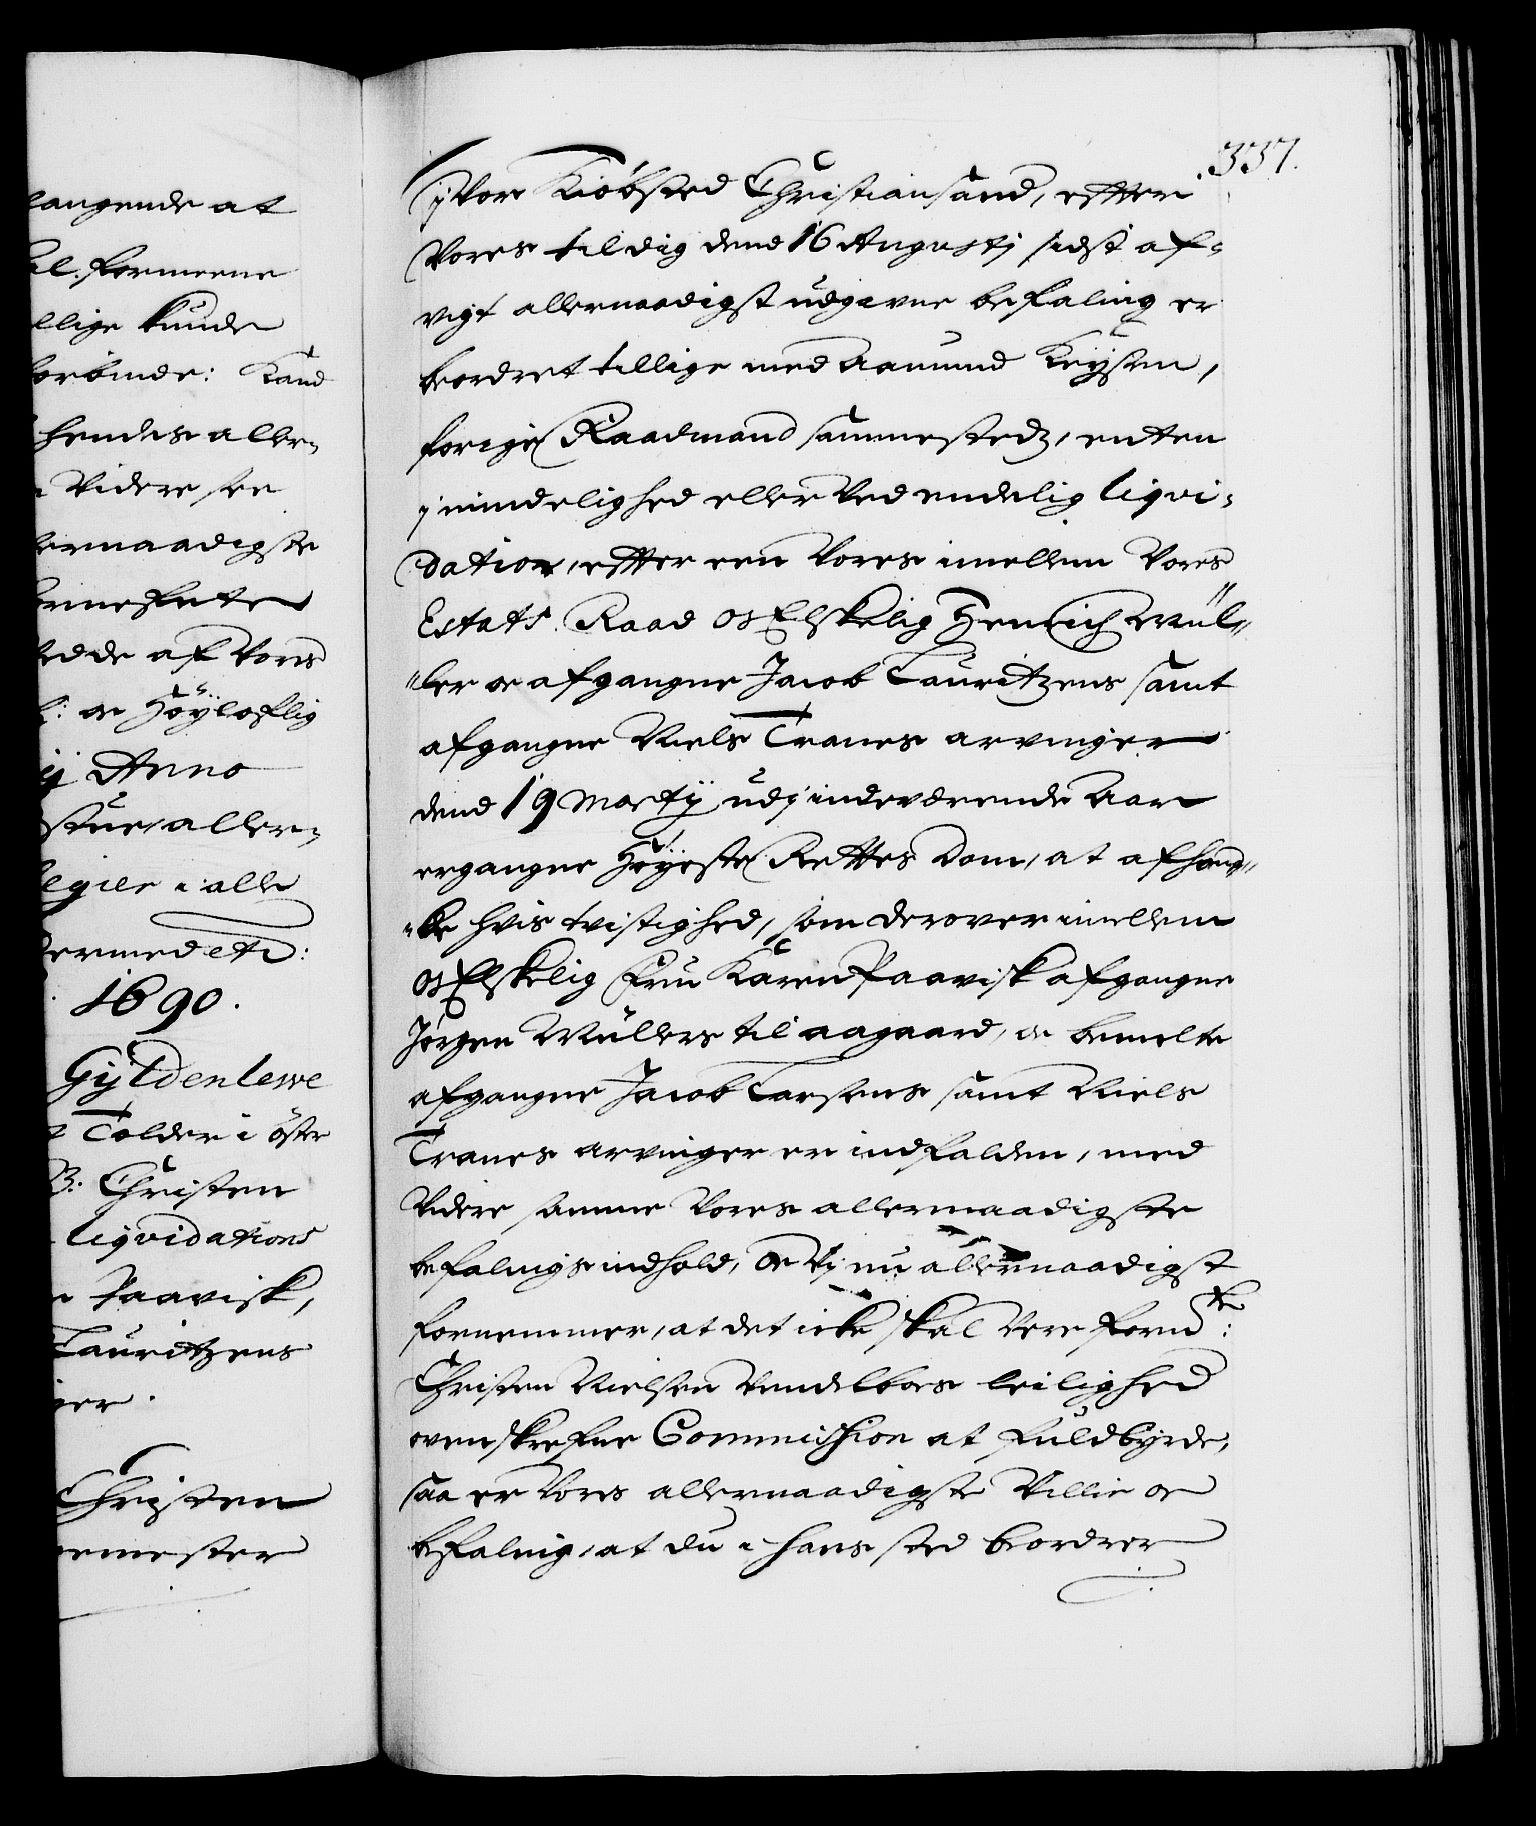 langende at
el. formeene
llige kunde
forbinde: Kand
hendes aller-
Videre see
lernaadigste
rmeente
edde af Vores
: oc Höÿloflig
ij Anno
stue, aller-
legier i alle
dermed etc:
1690.
Gyldenlewe
Tolder i öster
B. Christen
liqvidations
n Paavisk,
Lauritzens
ger.
Christen
emester
337.
i Vor Kiøbsted Christiansand, effter
Vores til dig dend 16 Augustj sidst af-
vigt allernaadigst udgivne befaling er
beordret tillige med Aamund Keysen,
forige Raadmand sammestedz, enten
i mindelighed eller Ved endelig liqvi-
dation, effter een Vores imellem Vores
Estats Raad Os Elskelig Henrich Mül-
ler oc afgangne Jacob Lauritzens samt
afgangne Niels Tranes arvinger
dend 19 Martij udj indeværende Aar
ergangne Höyeste Rettes Dom, at afhand-
le hvis tvistighed, som derover imellem
Os Elskelig Fru Karen Paavisk afgangne
Jørgen Müllers til Aagaard, oc bemelte
afgangne Jacob Larsens samt Niels
Tranes arvinger er indfalden, med
Videre samme Vores allernaadigste
befalings indhold, Oc Vj nu allernaadigst
fornemmer, at det icke skal Vere fornte:
Christen Nielsen Vendelboes leilighed
ovenskrefne Commission at fuldbyrde,
saa er Vores allernaadigste Villie oc
befaling, at du i hans sted beordrer